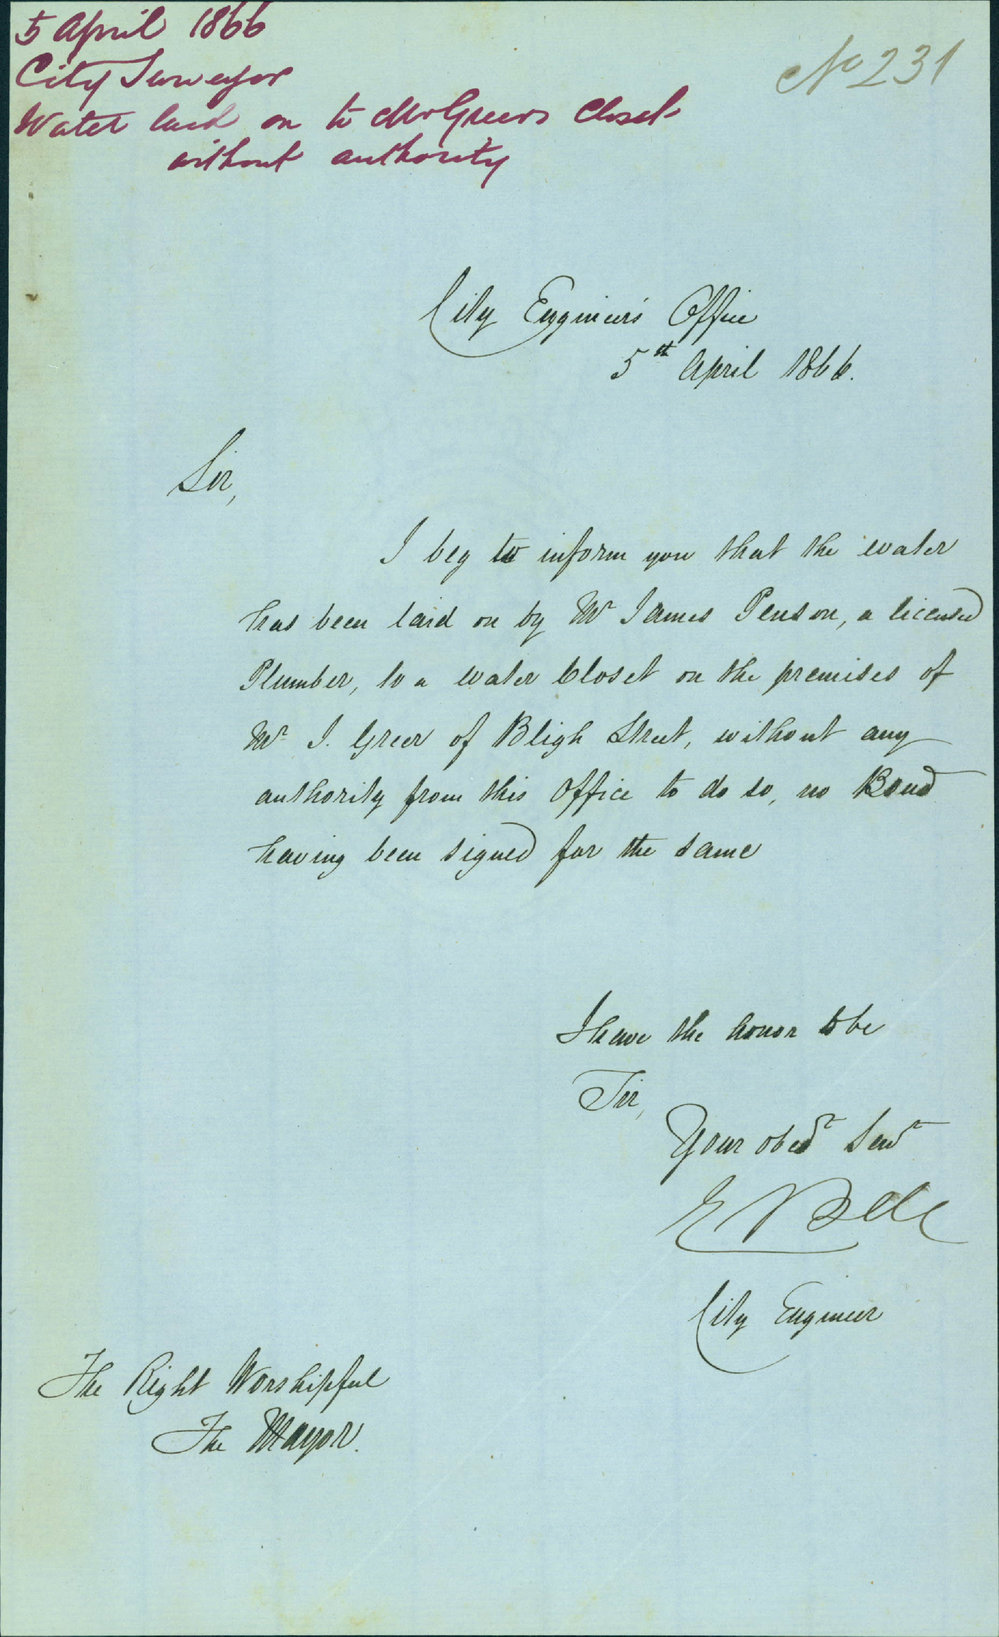 5 April 1866
City Surveyor
Water laid on to Mr Greers Closet
without authority
No 231
City Engineer's Office
5th April 1866.
Sir,
I beg to inform you that the water
has been laid on by Mr James Penson, a licensed
Plumber, to a water Closet on the premises of
Mr J. Greer of Bligh Street, without any
authority from this Office to do so, no Bond
having been signed for the same
I have the honor to be
Sir,
Your obedt Servt
E Bell
City Engineer
The Right Worshipful
The Mayor.